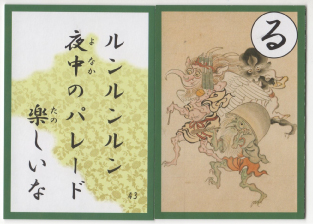 ルンルンルン
夜中のパレード
よなか
楽しいな
たの
43
る